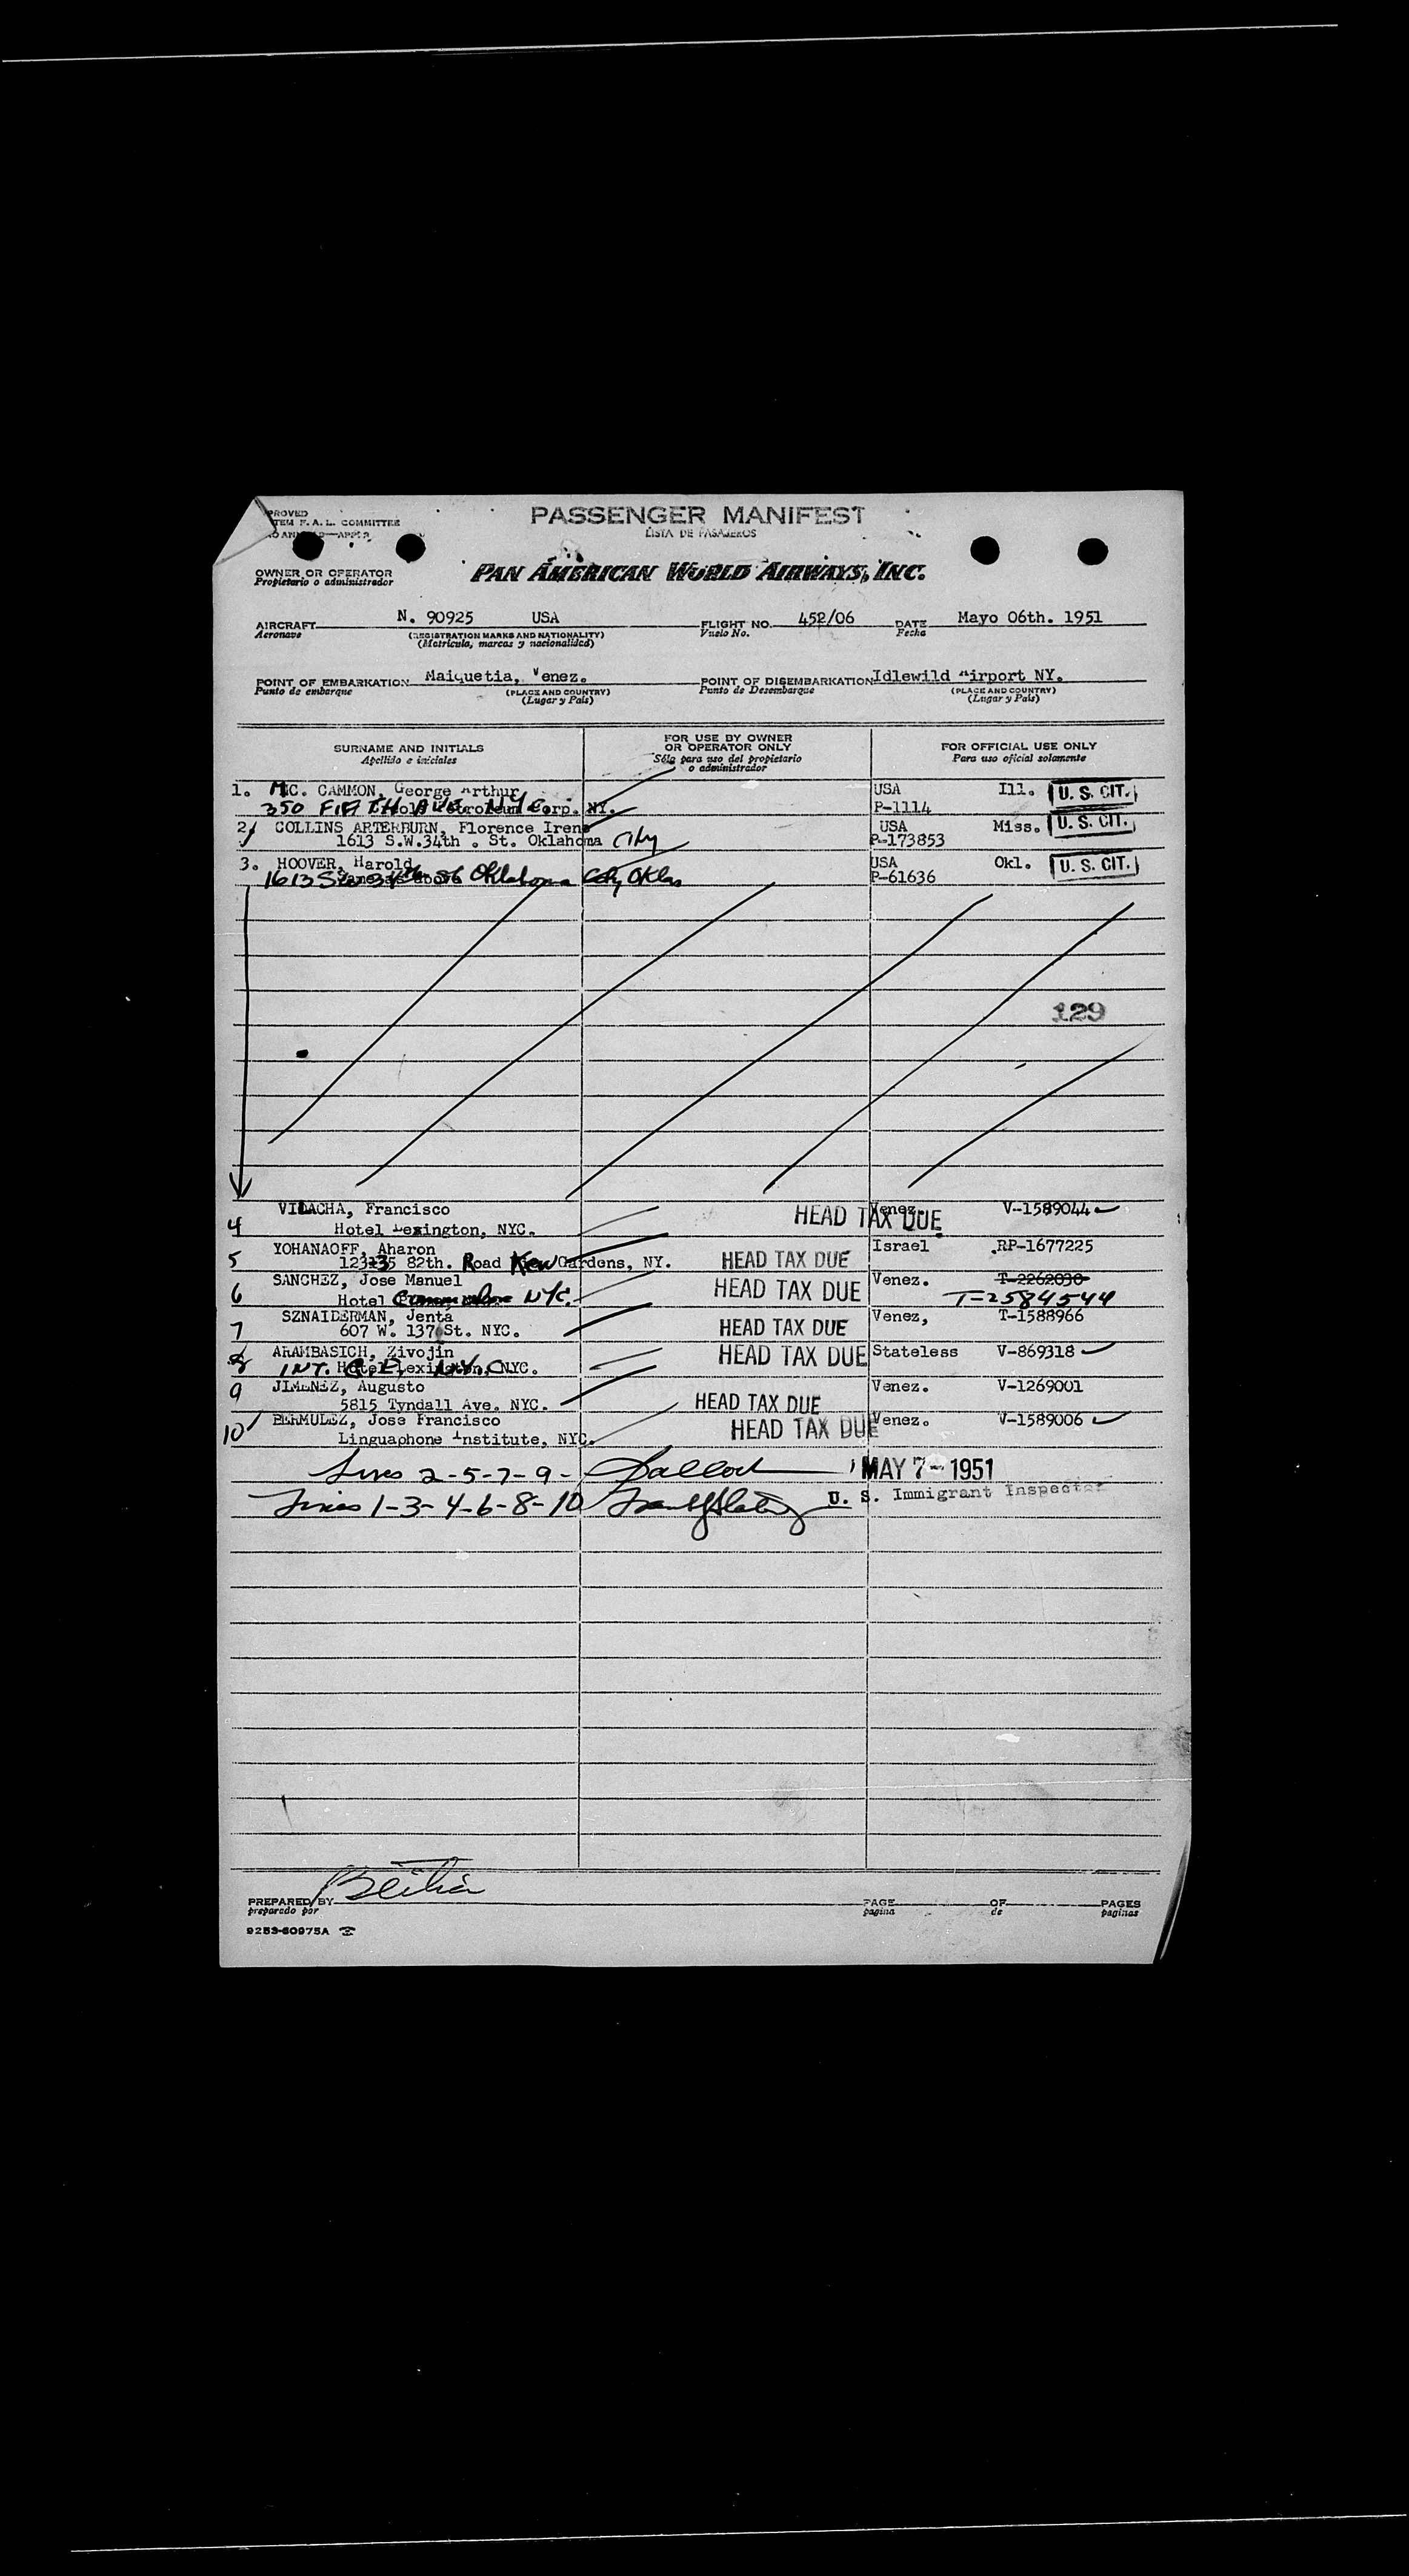 PASSENGER MANIFEST
LISTA DE PASAJEROS
PROVED
TEM F. A. L. COMMITTEE
OWNER OR OPERATOR
Propietario o administrador
PAN AMERICAN WORLD AIRWAYS, INC.
AIRCRAFT N. 90925 USA FLIGHT NO. 452/06 DATE Mayo 06th. 1951
Aeronave (REGISTRATION MARKS AND NATIONALITY) Vuelo No. Fecha
(Matricula, marcas y nacionalidad)
POINT OF EMBARKATION Maiquetia, Venez. POINT OF DISEMBARKATION Idlewild Airport NY.
Punto de embarque (PLACE AND COUNTRY) Punto de Desembarque (PLACE AND COUNTRY)
(Lugar y País) (Lugar y País)
SURNAME AND INITIALS FOR USE BY OWNER OR OPERATOR ONLY FOR OFFICIAL USE ONLY
Apellido e iniciales Sólo para uso del propietario o administrador Para uso oficial solamente
1. MC. CAMMON, George Arthur USA Ill. U. S. CIT.
350 FIFTH AVE NYC. Creole Petroleum Corp. NY. P-1114
2 COLLINS ARTERBURN, Florence Irene USA Miss. U. S. CIT.
1613 S.W.34th . St. Oklahoma City P-173853
3. HOOVER, Harold USA Okl. U. S. CIT.
1613 SW 34th St Oklahoma City Okla P-61636
129
VILACHA, Francisco HEAD TAX DUE Venez. V-1589044
4 Hotel Lexington, NYC.
YOHANAOFF, Aharon Israel RP-1677225
5 123-35 82th. Road Kew Gardens, NY. HEAD TAX DUE
SANCHEZ, Jose Manuel HEAD TAX DUE Venez. T-2262030
6 Hotel Commodore NYC. T=2584544
SZNAIDERMAN, Jenta Venez, T-1588966
7 607 W. 137 St. NYC. HEAD TAX DUE
ARAMBASICH, Zivojin HEAD TAX DUE Stateless V-869318
8 INT. G.E. N.Y.C. Hotel Lexington, NYC.
JIMENEZ, Augusto Venez. V-1269001
9 5815 Tyndall Ave. NYC. HEAD TAX DUE
BERMUDEZ, Jose Francisco HEAD TAX DUE Venez. V-1589006
10 Linguaphone Institute, NYC.
Lines 2-5-7-9- MAY 7 - 1951
Lines 1-3-4-6-8-10 U. S. Immigrant Inspector
PREPARED BY PAGE OF PAGES
preparado por pagina de paginas
9253-60975A